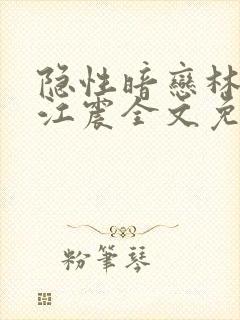 隐性暗戀林
江震全文免
粉筆琴